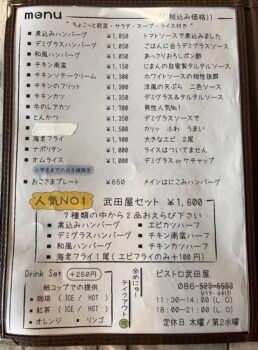 menu 税込み価格))
"ちょこっと前菜・サラダ・スープ・ライス付き"
煮込みハンバーグ ¥1,050 トマトソースで煮込みました
デミグラスハンバーグ ¥1,050 ごはんに合うデミグラスソース
和風ハンバーグ ¥1,050 あっさりおろしポン酢
チキン南蛮 ¥1,150 じまんの自家製タルタルソース
チキンソテークリーム ¥1,300 ホワイトソースの相性抜群
チキンのフリット ¥1,100 洋風の天ぷら 二色ソース
チキンカツ ¥1,350 デミグラス&タルタルソース
牛のしアカツ ¥1,700 男性人気No1
とんかつ カリッ ふわ うまい
海老フライ 大きなエビ 2尾
ナポリタン ¥1,000 ライスはついてません
オムライス ¥1,000 デミグラス or ケチャップ
小学生までのお子様限定
おこさまプレート ¥650 メインはにこみハンバーグ
人気NO1 武田屋セット ¥1,600
7種類の中から2品おえらび下さい
煮込みハンバーグ エビカツハーフ
デミグラスハンバーグ チキン南蛮ハーフ
和風ハンバーグ チキンカツハーフ
海老フライ1尾(エビフライのみ+100円)
Drink Set +250円
紙コップでの提供
珈琲 (ICE / HOT)
紅茶 (ICE / HOT)
オレンジ ・ リンゴ
全めにゅー
テイクアウト
可
ビストロ武田屋
11:30-14:00(L.O)
18:00-21:00(L.O)
定休日 木曜/第2水曜